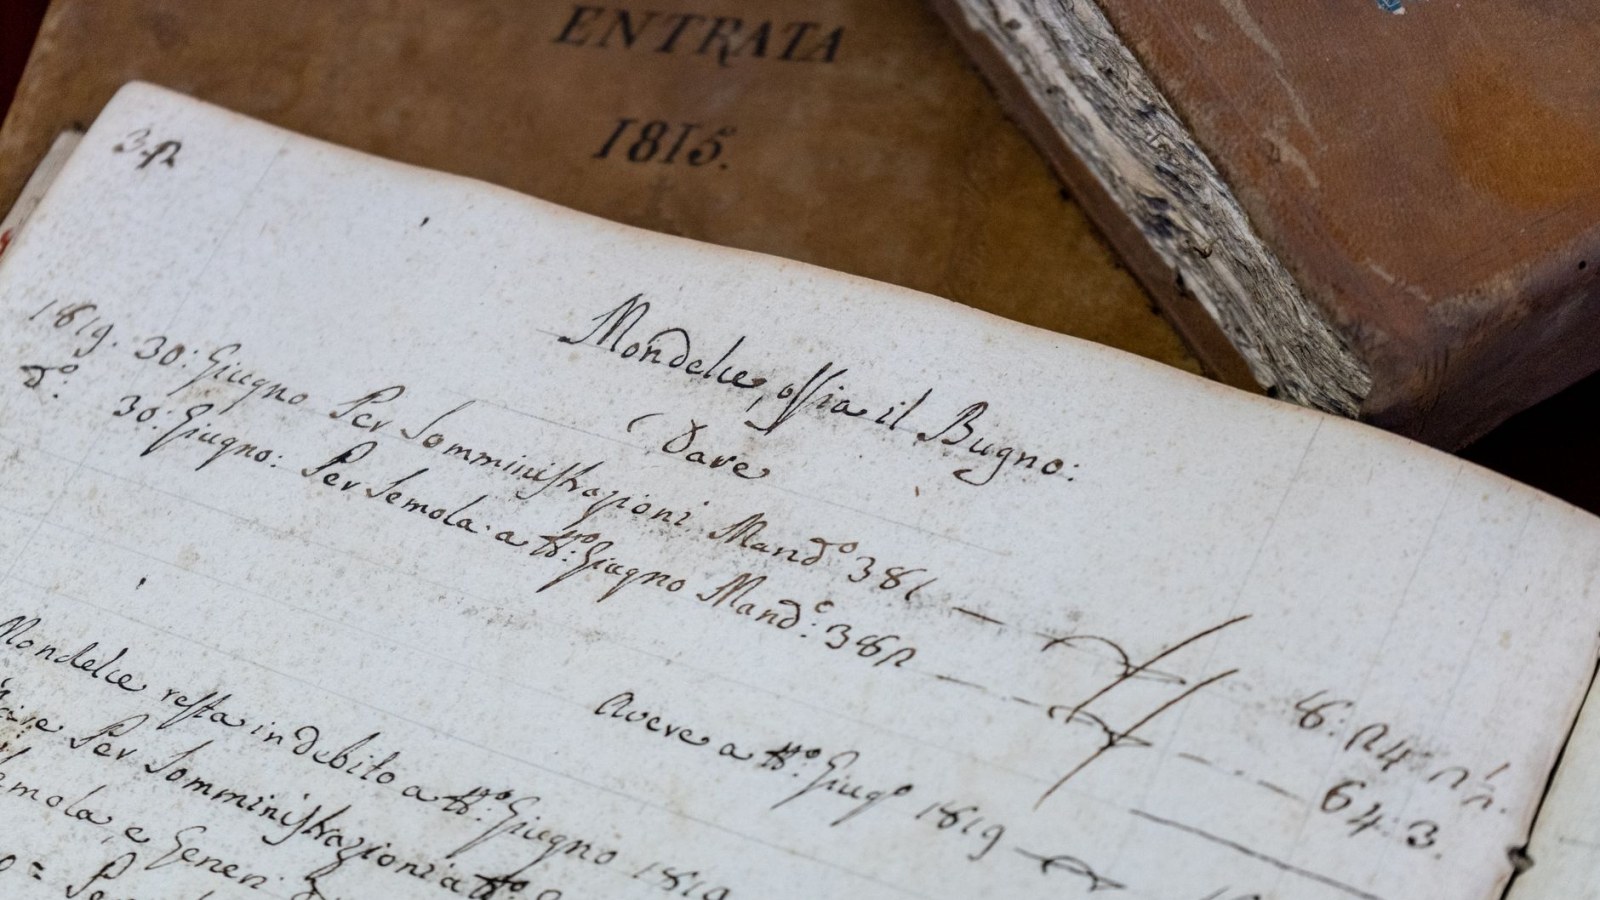 ENTRATA
1815.
32
Mondelce, ossia il Bugno:
Dare
1819. 30: Giugno Per Somministrazioni Mand:º 381
dº: 30: Giugno: Per Semola a tt:º Giugno Mand:º 382
64: 3.
Avere a tt:º Giugº 1819
Mondelce resta in debito a tt:º Giugno 1819
Per Somministrazioni a tt:º
e Generi